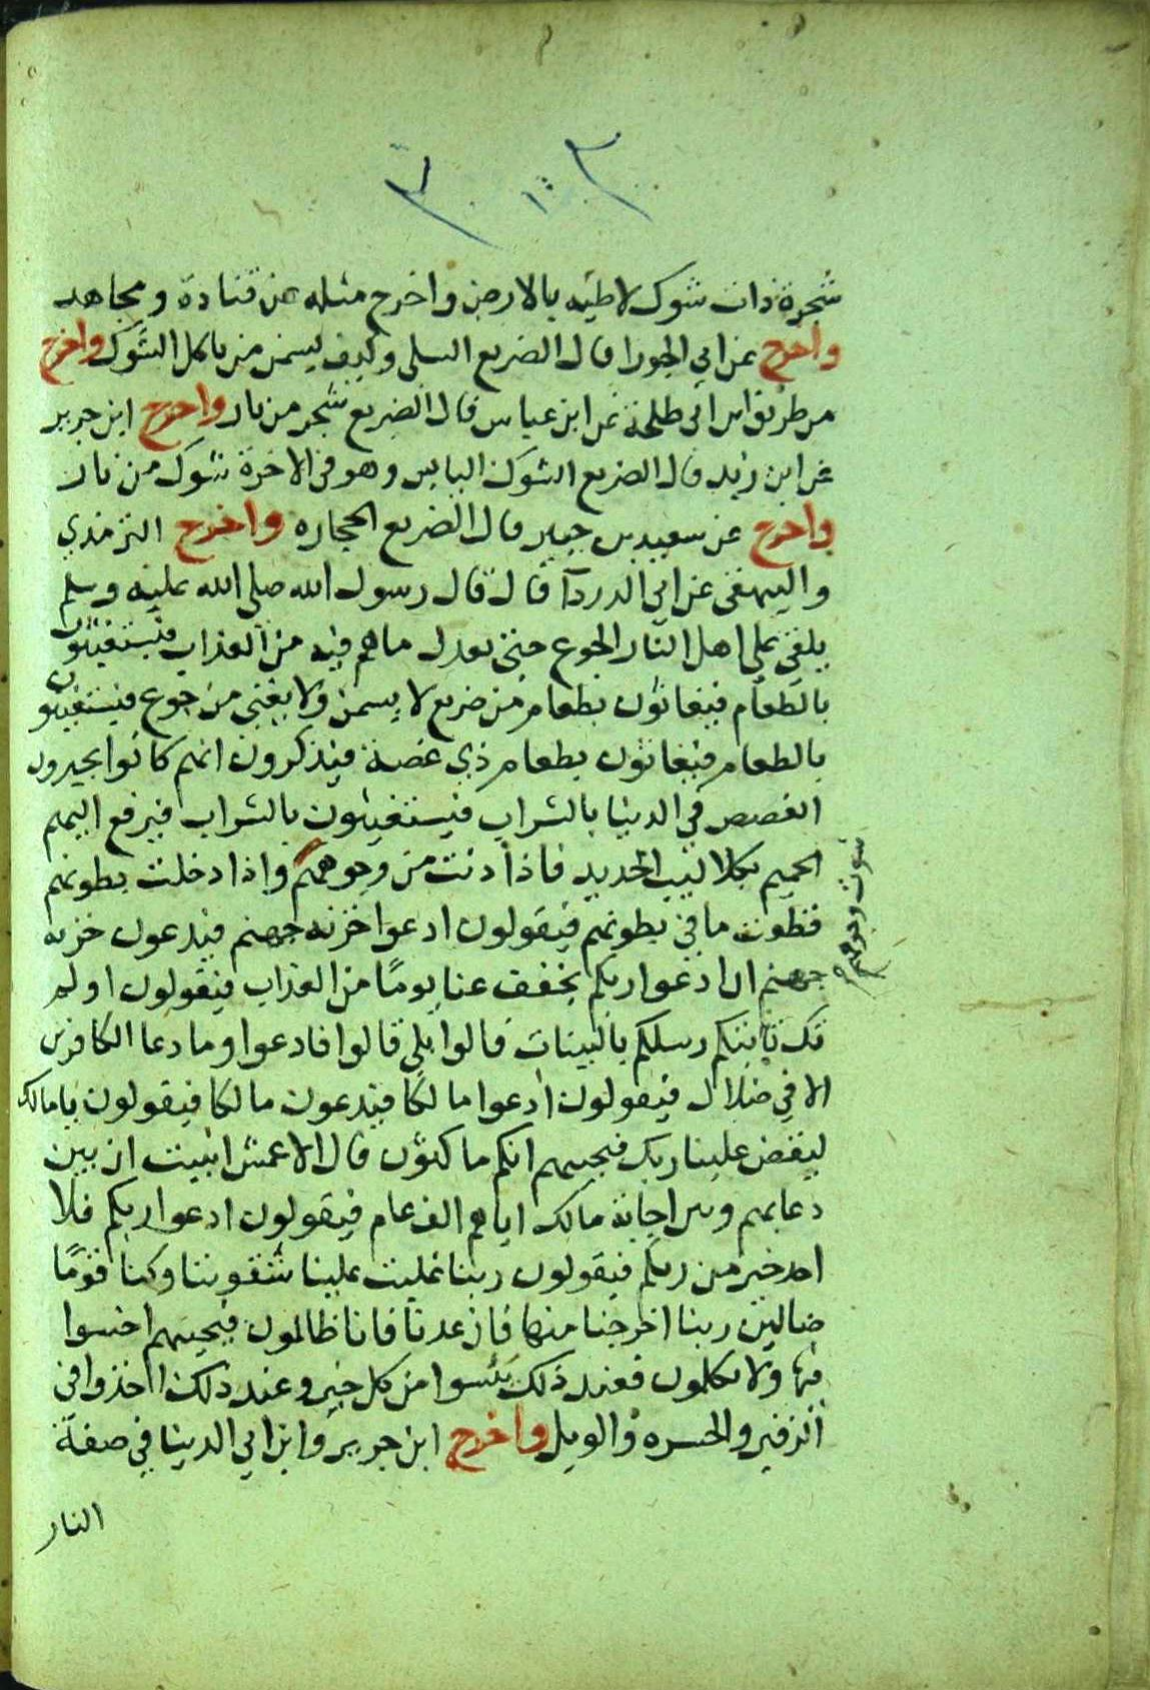 شجرة ذات شوك لاطيه بالارض واخرج مثله عن قتادة ومجاهد
واخرج عن ابي الجوزا قال الضريع السلى وكيف يسمن من ياكل الشوك واخرج
من طريق ابن ابي طلحة عن ابن عباس قال الضريع شجر من نار واخرج ابن جرير
عن ابن زيد قال الضريع الشوك اليابس وهو في الاخرة شوك من نار
واخرج عن سعيد بن جبير قال الضريع الحجاره واخرج الترمذي
والبيهقي عن ابي الدردآ قال قال رسول الله صلى الله عليه وسلم
يلقى على اهل النار الجوع حتى يعدل ما هم فيه من العذاب فيستغيثون
بالطعام فيغاثون بطعام من ضريع لا يسمن ولا يغني من جوع فيستغيثون
بالطعام فيغاثون بطعام ذي غصة فيذكرون انهم كانوا يجيرون
الغصص في الدنيا بالشراب فيستغيثون بالشراب فيرفع اليهم
الحميم بكلاليب الحديد فاذا دنت من وجوههم واذا دخلت بطونهم
شوت وجوههم
قطعت ما في بطونهم فيقولون ادعوا خزنه جهنم فيدعون خزنه
جهنم ان ادعوا ربكم يخفف عنا يومًا من العذاب فيقولون اولم
تك تاتيكم رسلكم بالبينات قالوا بلى قالوا فادعوا وما دعا الكافرين
الا في ضلال فيقولون ادعوا مالكا فيدعون مالكا فيقولون يا مالك
ليقض علينا ربك فيجيبهم انكم ماكثون قال الاعمش انبيت ان بين
دعايهم وبين اجابة مالك اياهم الف عام فيقولون ادعوا ربكم فلا
احد خير من ربكم فيقولون ربنا غلبت علينا شقوتنا وكنا قومًا
ضالين ربنا اخرجنا منها فان عدنا فانا ظالمون فيجيبهم اخسوا
فيها ولا تكلمون فعند ذلك يئسوا من كل خير وعند ذلك اخذوا في
الزفير والحسره والويل واخرج ابن جرير وابن ابي الدنيا في صفة
النار